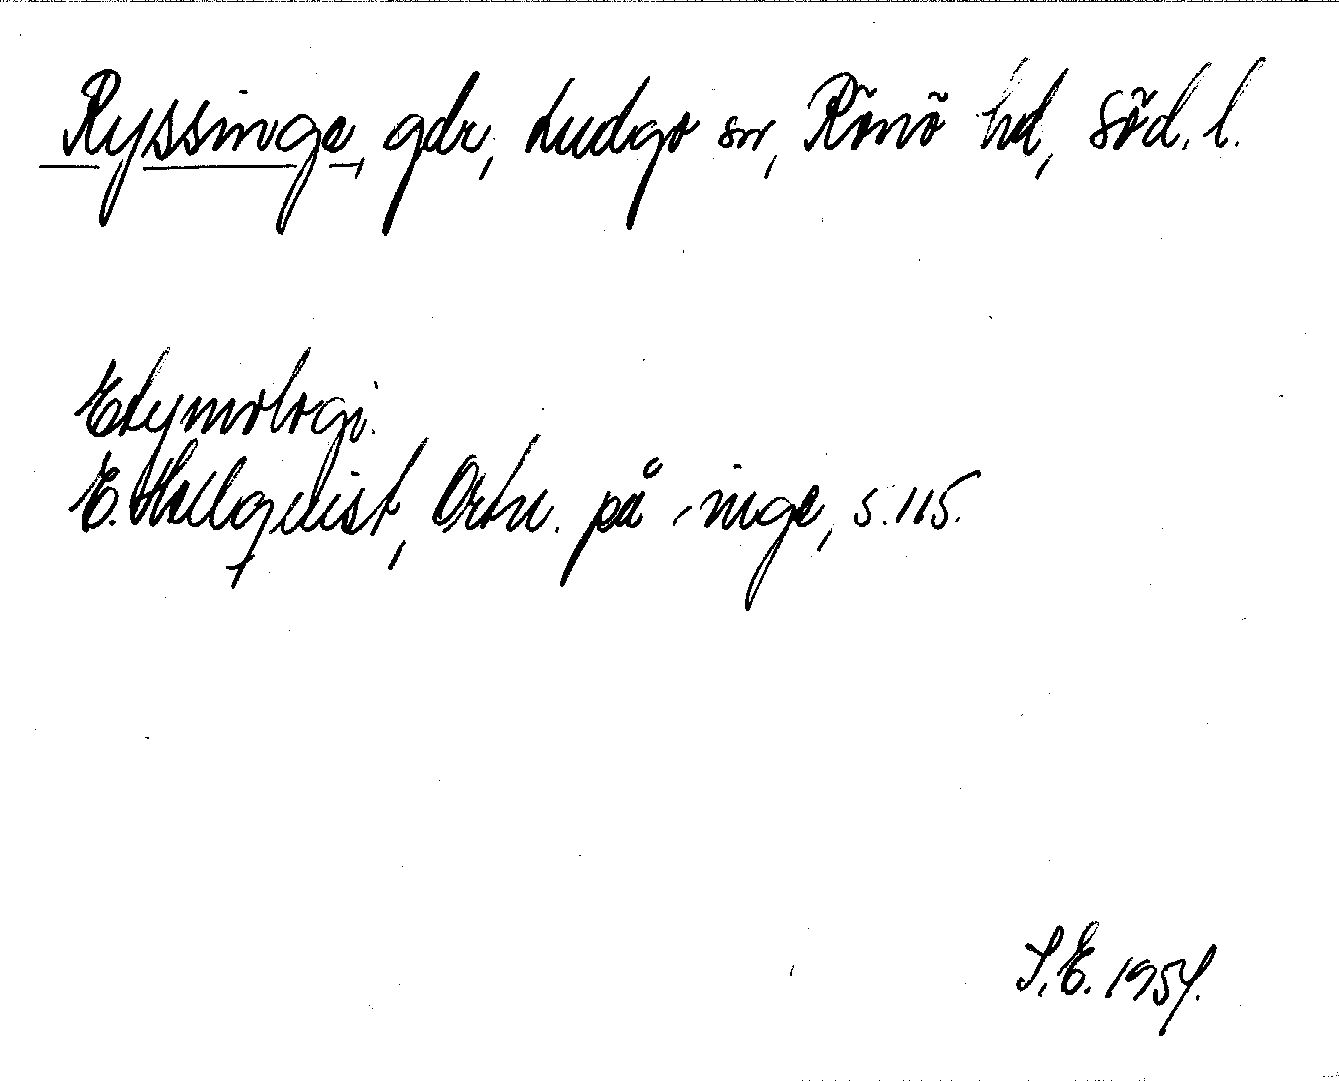 Ryssinge, gdr, Ludgo sn, Rönö hd, Söd. l.
Etymologi.
E. Hellquist, Ortn. på -inge, s. 115.
S.E. 1954.